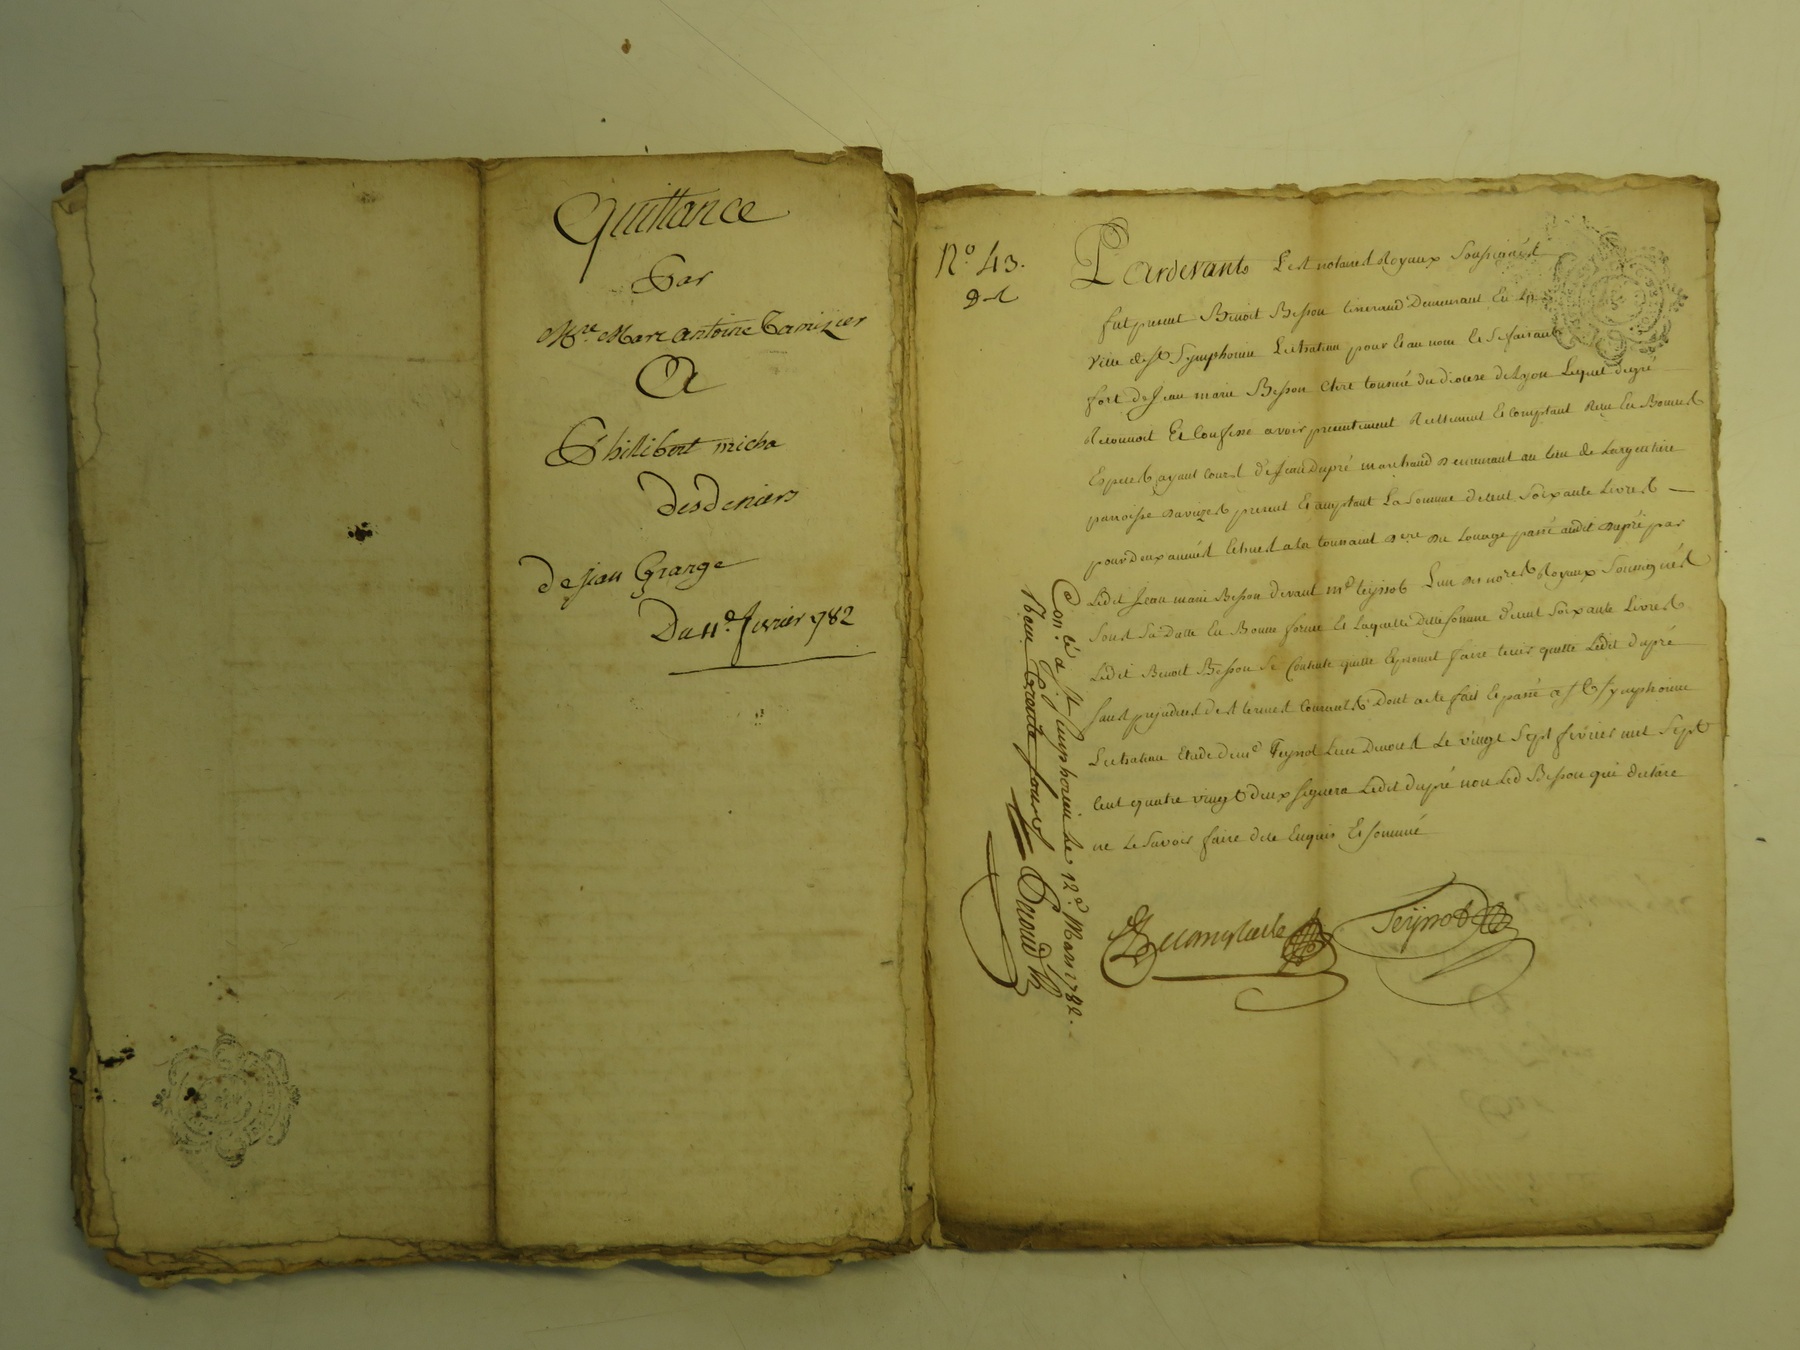 Quittance
Par
Mre. Marc antoine
A
Phillibert micha
des deniers
de jean Grange
Du 11e. fevrier 1782
No. 43.
Pardevants Les notaires Royaux Soussignés
fut present Benoit Besson tisserand Demeurant En la
Ville de st Symphorien Le chateau pour et au nom et se faisant
fort de Jean marie Besson Clerc tonsuré du diocese de Lyon Lequel de gré
Reconnoit Et Confesse avoir presentement Reellement Et Comptant Reçu En Bonnes
Especes ayant Cours de Jean Dupré marchand demeurant au lieu de Largentiere
parroisse present Et acceptant La Somme de Cent Soixante Livres
pour deux années Echues a la toussaint du Louage passé audit dupré par
Ledit Jean marie Besson devant me teyssot L'un des nores. Royaux Soussignés
Sous Sa Datte En Bonne forme Et Laquelle Ditte somme de Cent Soixante Livres
Ledit Benoit Besson Se Contente quitte Et promet faire tenir quitte Ledit dupré
Sans prejudice des termes Courants Dont acte fait Et passé a st Symphorien
Le chateau Etude de me Teyssot L'un Denous Le vingt Sept fevrier mil Sept
Cent quatre vingt deux signera Ledit dupré non Led Besson qui declare
ne Le Savoir faire de ce Enquis Et sommé
Teyssot
Conlé. a st. Simphorien le 12e. Mars 1782.